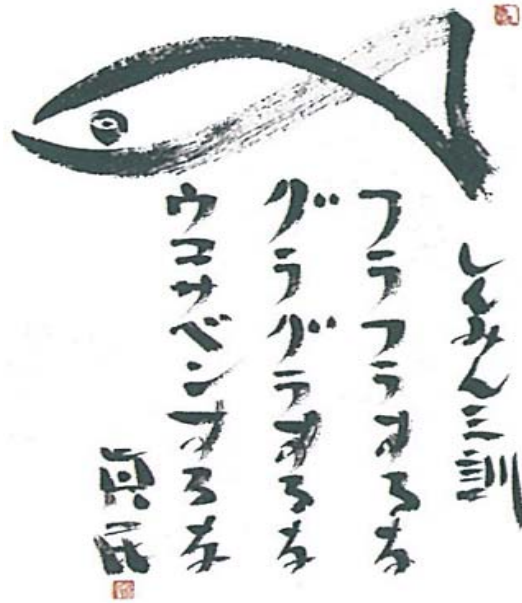 しんみん三訓
フラフラするな
グラグラするな
ウコサベンするな
眞民